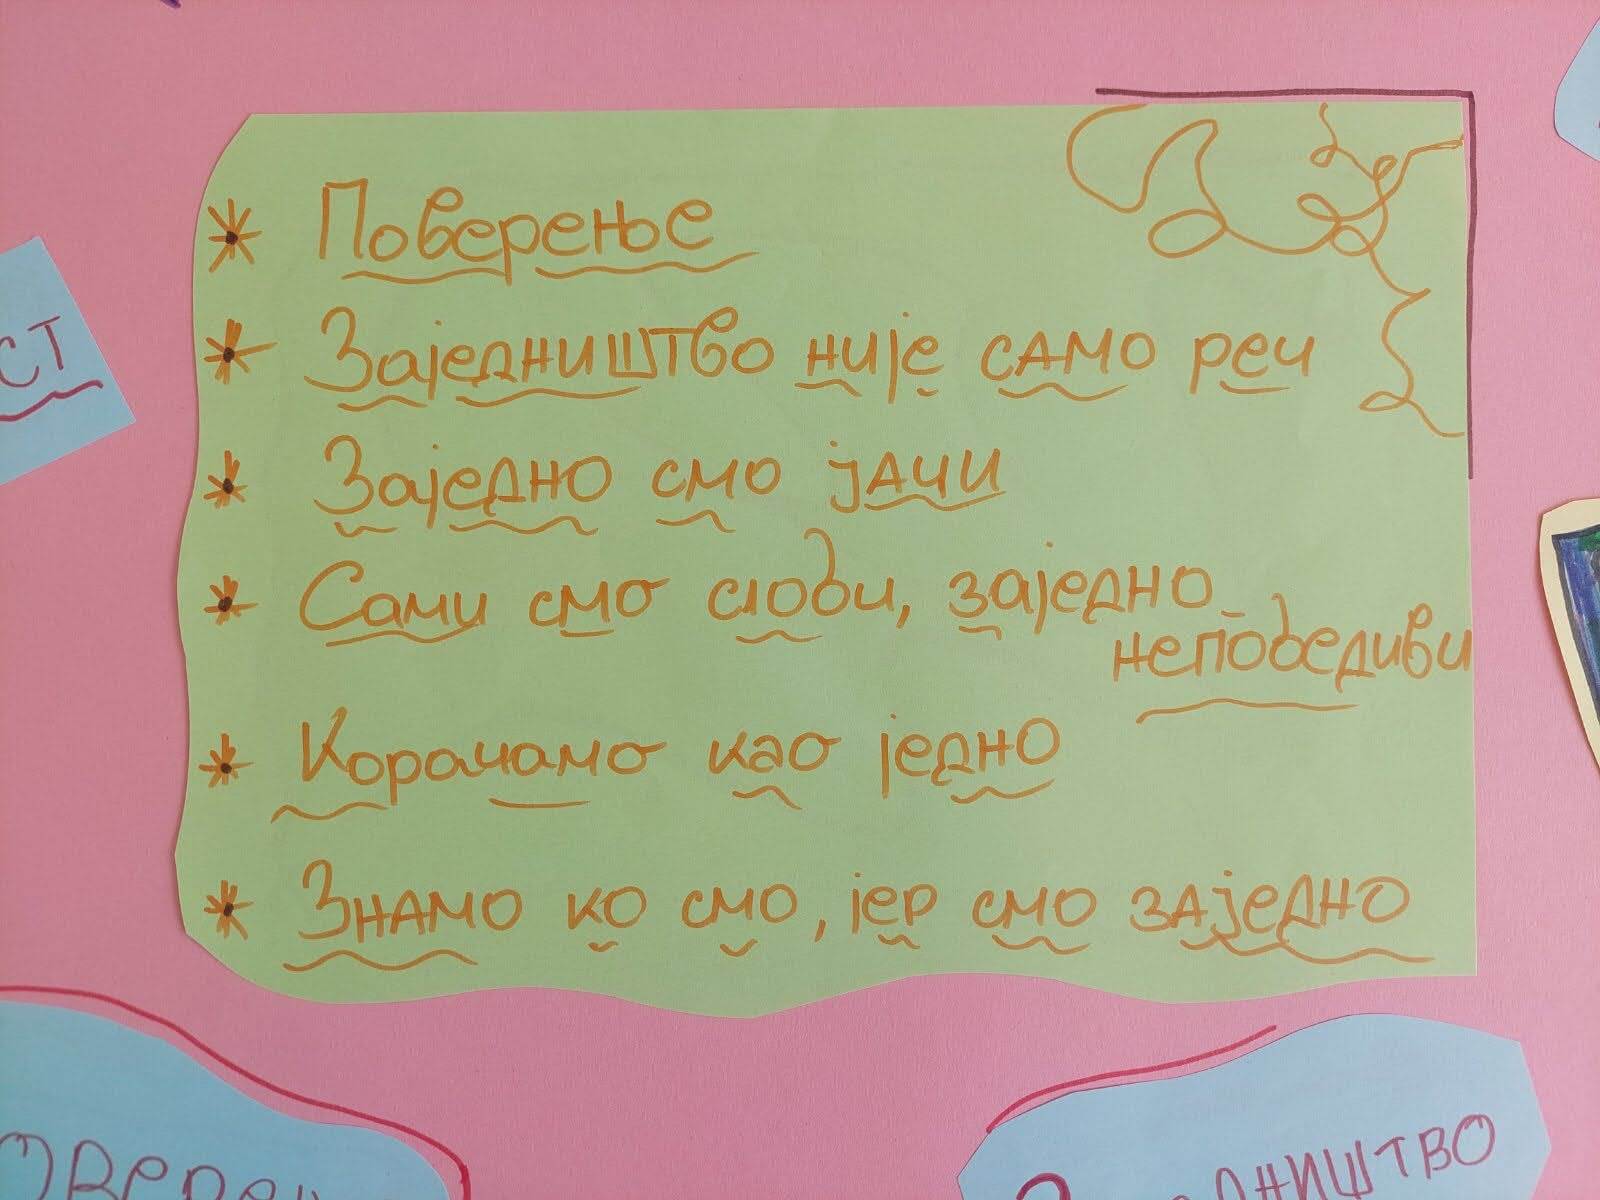 СТ
Поверење
Заједништво није само реч
Заједно смо јачи
Сами смо слоби, заједно
непобедиви
Корачамо као једно
Знамо ко смо, јер смо заједно